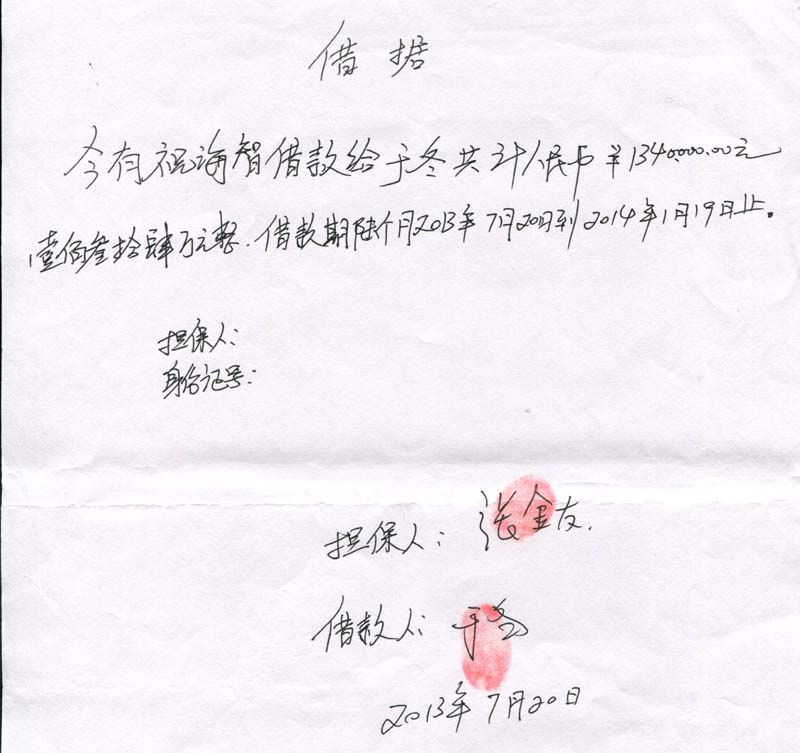 借据
今有祝海智借款给于冬共计人民币￥1340000.00元
壹佰叁拾肆万元整.借款期陆个月2013年7月20日到2014年1月19日止。
担保人:
身份证号:
担保人: 张金友.
借款人: 于冬
2013年7月20日